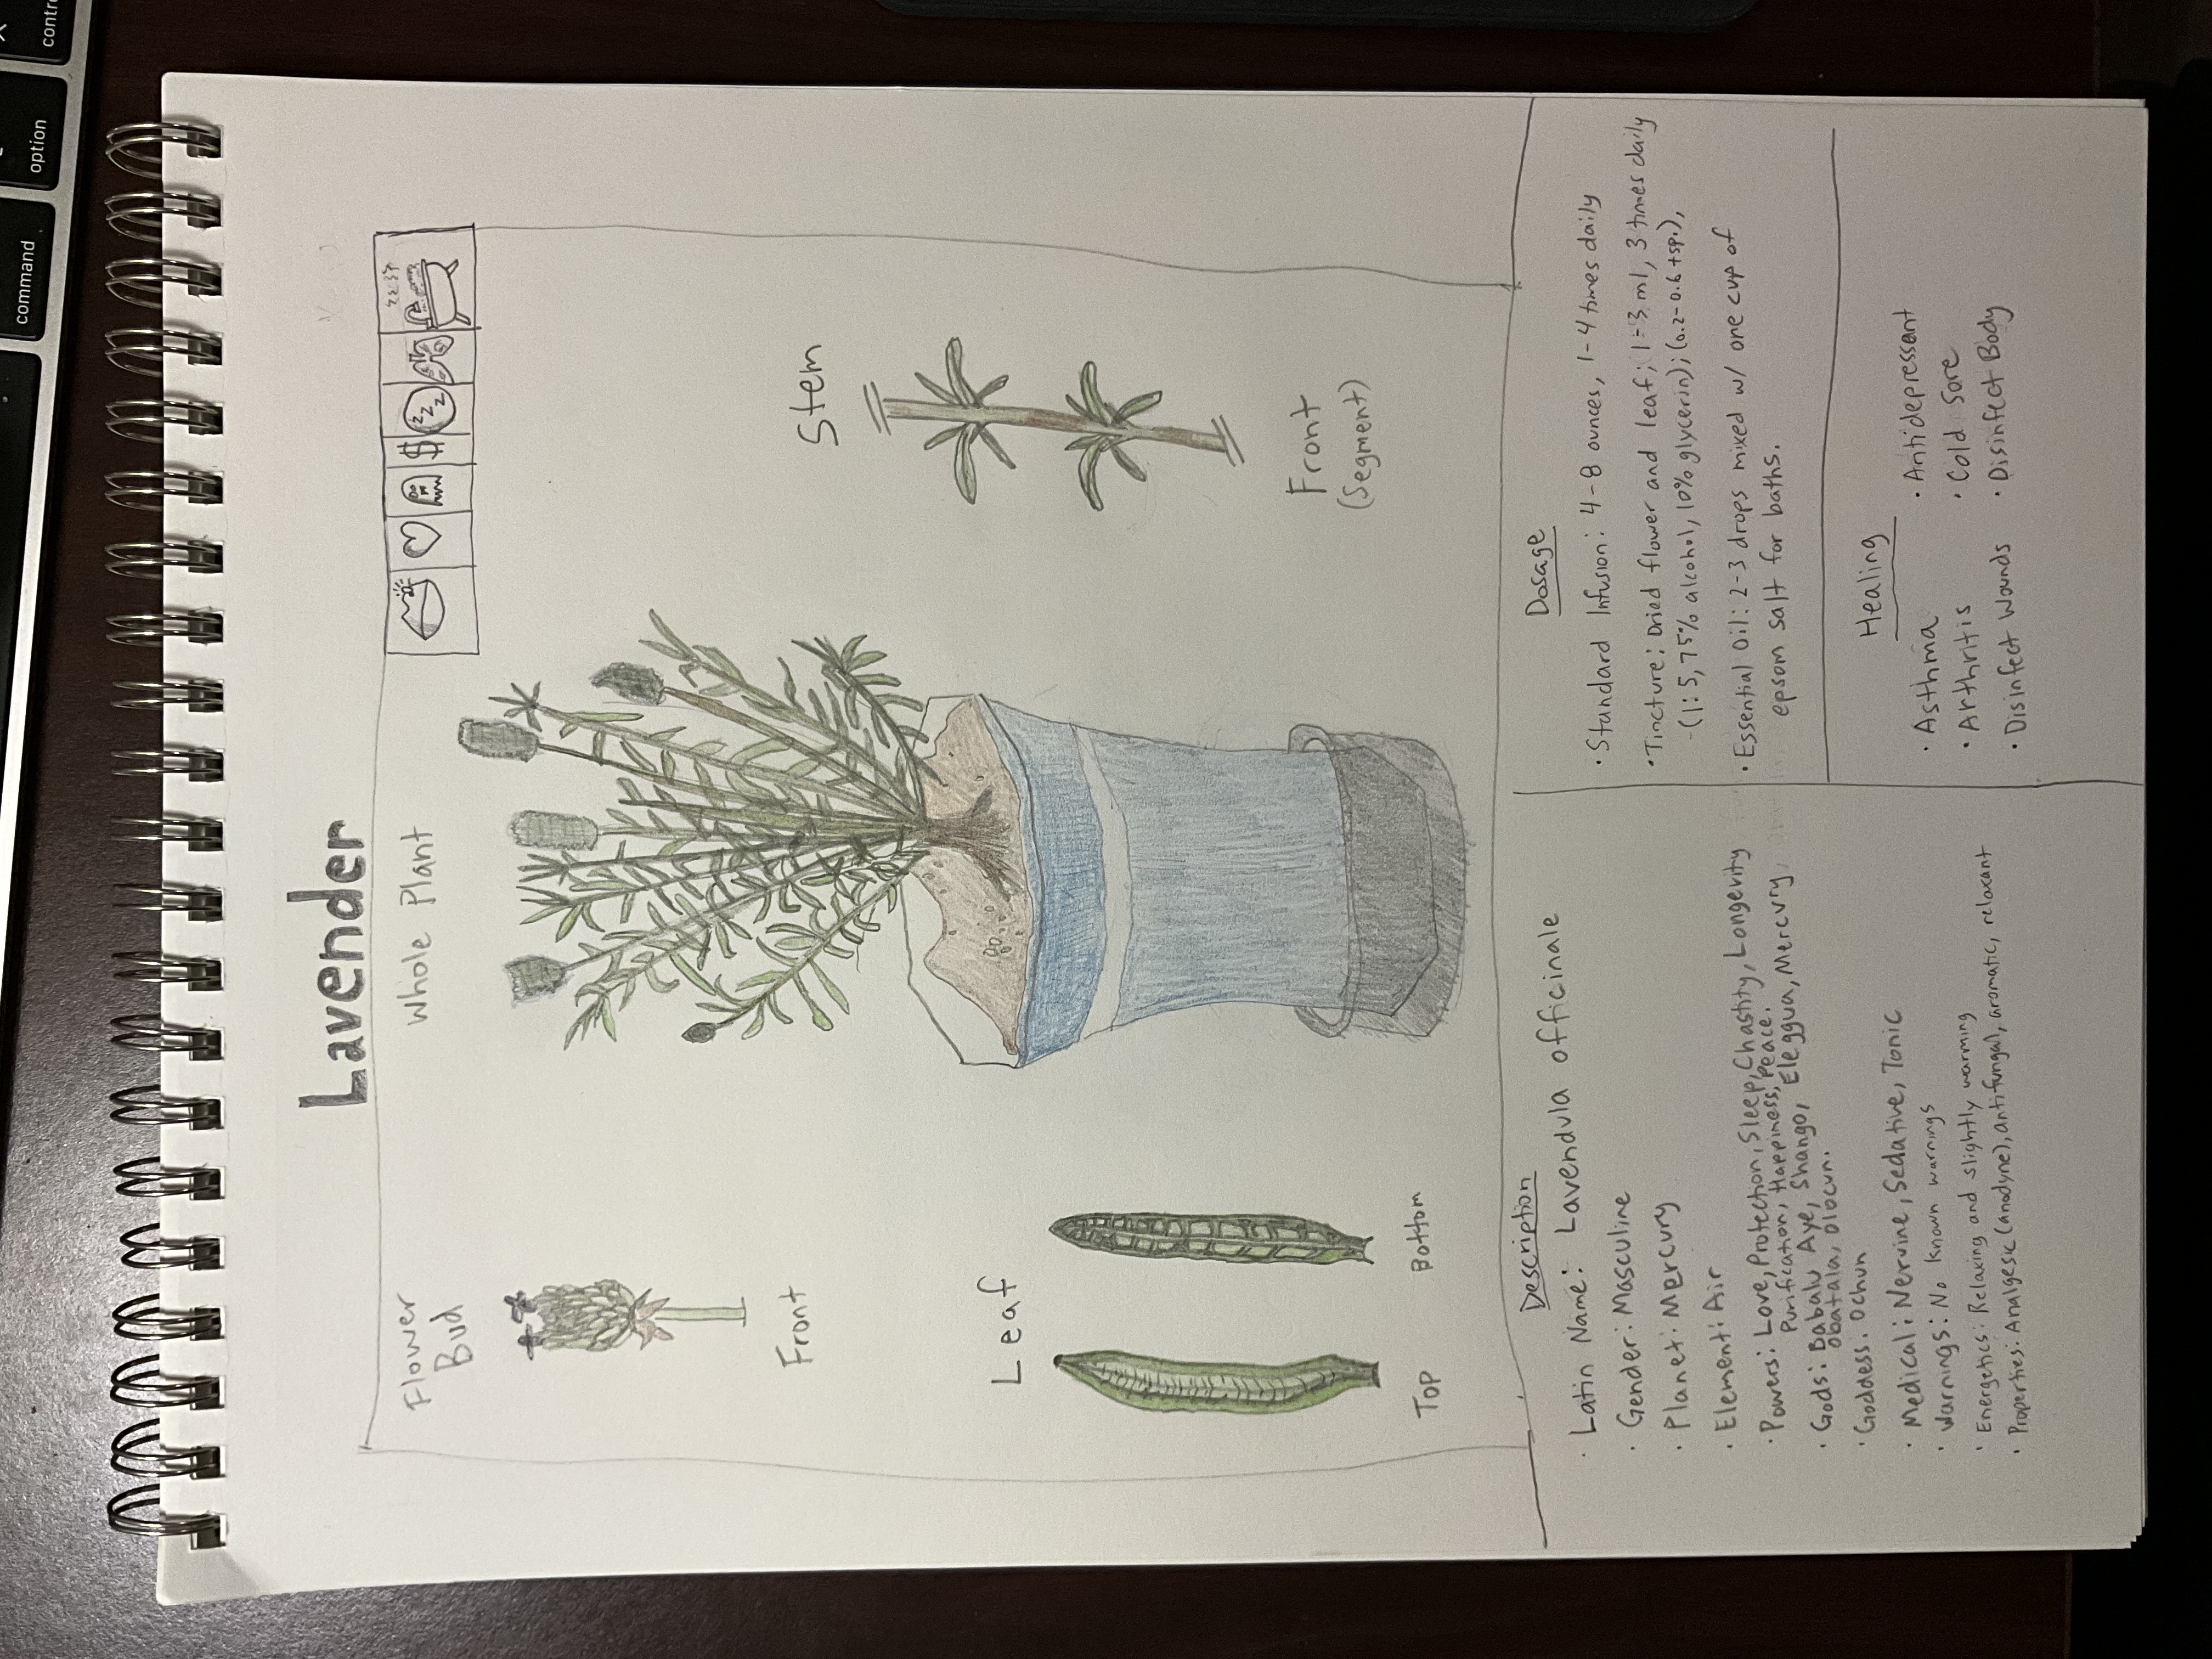 command
option
Lavender
Flower
Bud
Whole Plant
$
z z z
Front
Stem
Leaf
Front
(Segment)
Top
Bottom
Description
· Latin Name: Lavendula officinale
· Gender: Masculine
· Planet: Mercury
· Element: Air
· Powers: Love, Protection, Sleep, Chastity, Longevity
Purification, Happiness, Peace.
· Gods: Babalu Aye, Shango, Eleggua, Mercury,
Obatala, Olocun.
· Goddess. Ochun
· Medical: Nervine, Sedative, Tonic
· Warnings: No known warnings
· Energetics: Relaxing and slightly warming
· Properties: Analgesic (anodyne), antifungal, aromatic, relaxant
Dosage
· Standard Infusion: 4-8 ounces, 1-4 times daily
· Tincture: Dried flower and leaf; 1-3 ml, 3 times daily
-(1:5, 75% alcohol, 10% glycerin); (0.2-0.6 tsp.),
· Essential Oil: 2-3 drops mixed w/ one cup of
epsom salt for baths.
Healing
· Asthma
· Arthritis
· Disinfect Wounds
· Antidepressant
· Cold Sore
· Disinfect Body